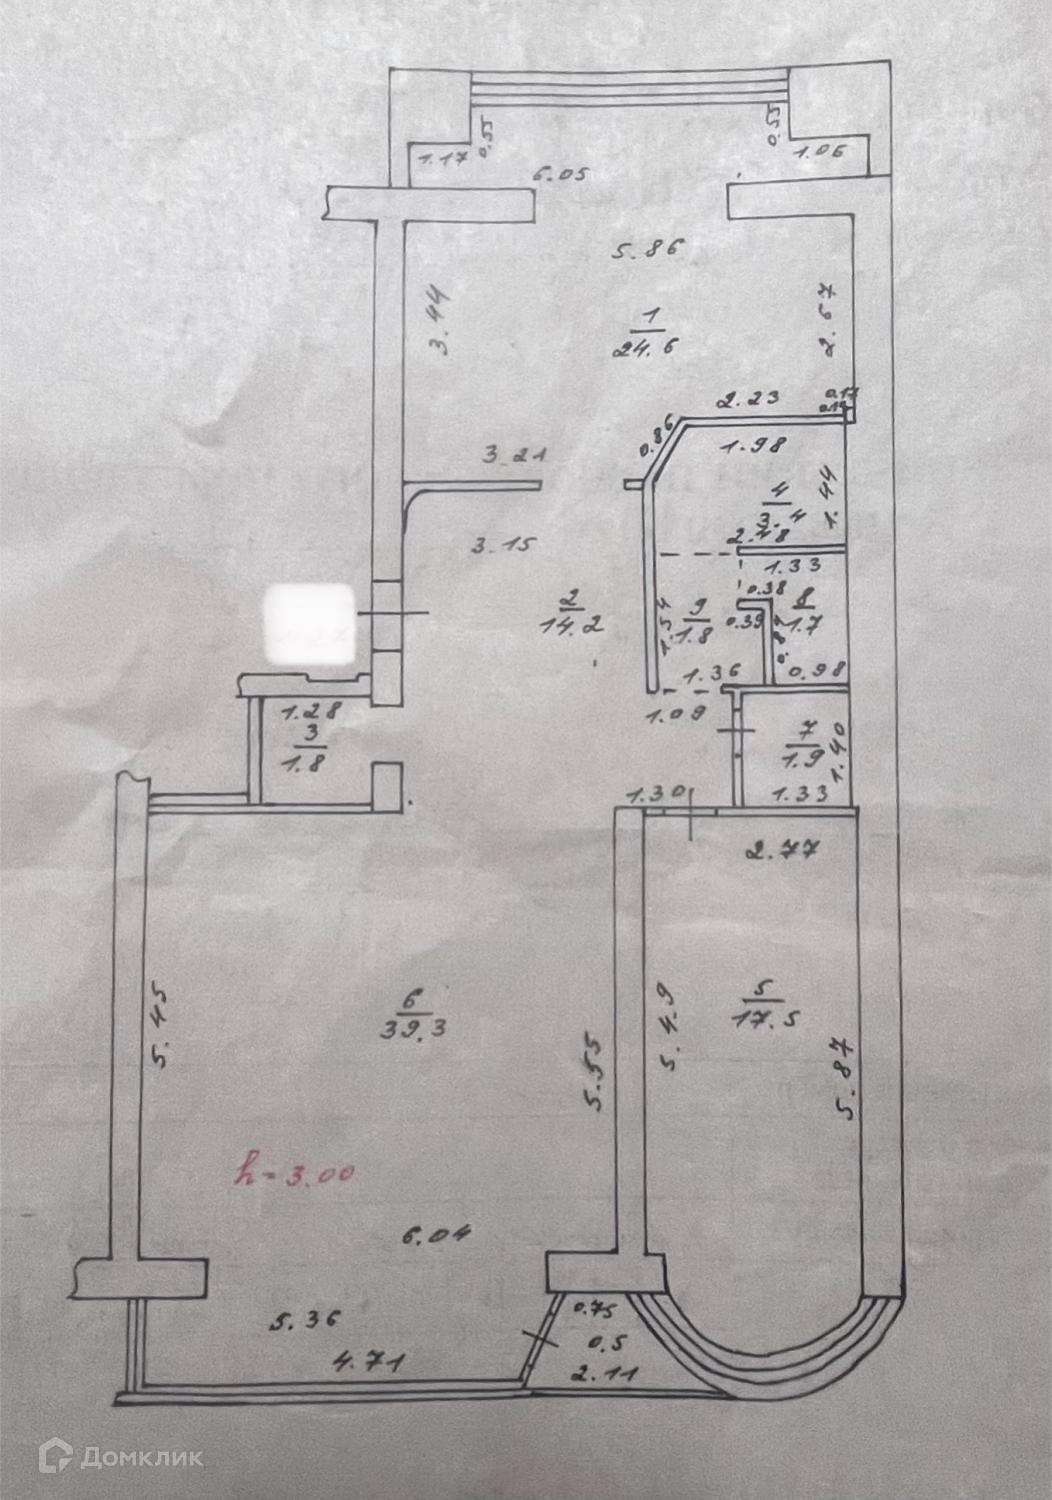 0.55
0.55
1.17
1.06
6.05
5.86
3.44
2.67
1
24.6
2.23
0.86
1.98
3.21
4
3.4
1.44
2.48
3.15
1.33
0.38
2
14.2
1.54
9
1.8
0.39
8
1.7
1.36
0.98
1.28
3
1.8
1.09
7
1.9
1.40
1.30
1.33
2.77
5.45
6
39.3
5.55
5.49
5
17.5
5.87
h=3.00
6.04
5.36
4.71
0.75
0.5
2.11
Домклик